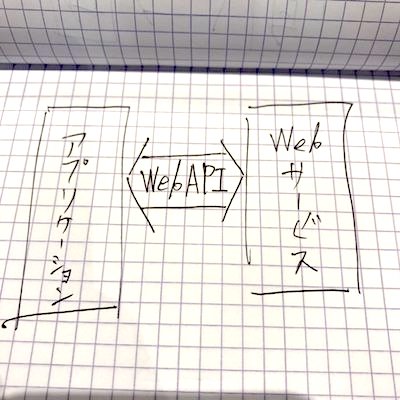 アプリケーション
WebAPI
Webサービス